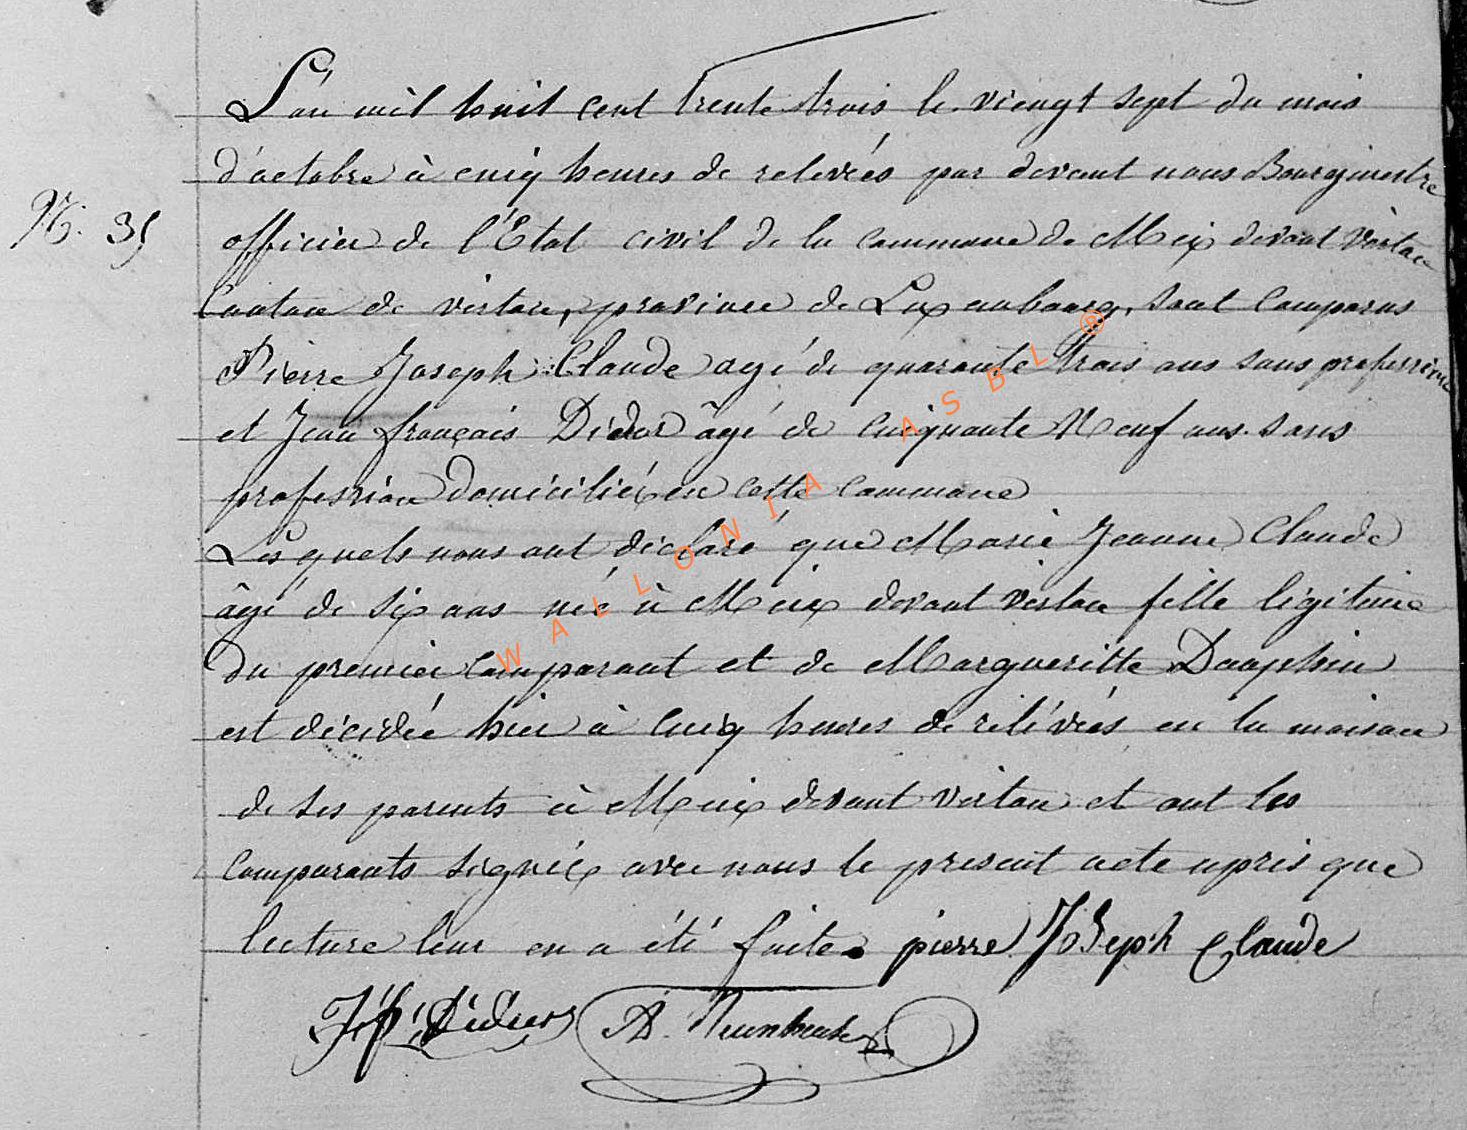 L'an mil huit cent trente trois le viengt sept du mois
N. 35
d'octobre à cinq heures de relevées par devant nous Bourgmestre
officier de l'Etat civil de la commune de Meix devant Virton
Canton de virton, province de Luxembourg, sont comparus
Pierre Joseph Claude agé de quarante trois ans sans profession
et Jean françois Didier âgé de cinquante Neuf ans sans
profession domiciliés en cette commune
Les quels nous ont déclaré que Marie Jeanne Claude
âgé de six ans né à Meix devant virton fille légitime
du premier comparant et de Margueritte Dauphin
est décédée hier à cinq heures de rélévées en la maison
de ses parents à Meix devant virton et ont les
comparants signéx avec nous le present acte après que
lecture leur en a été faite. pierre Joseph Claude
Didier
WALLONIA ASBL ®